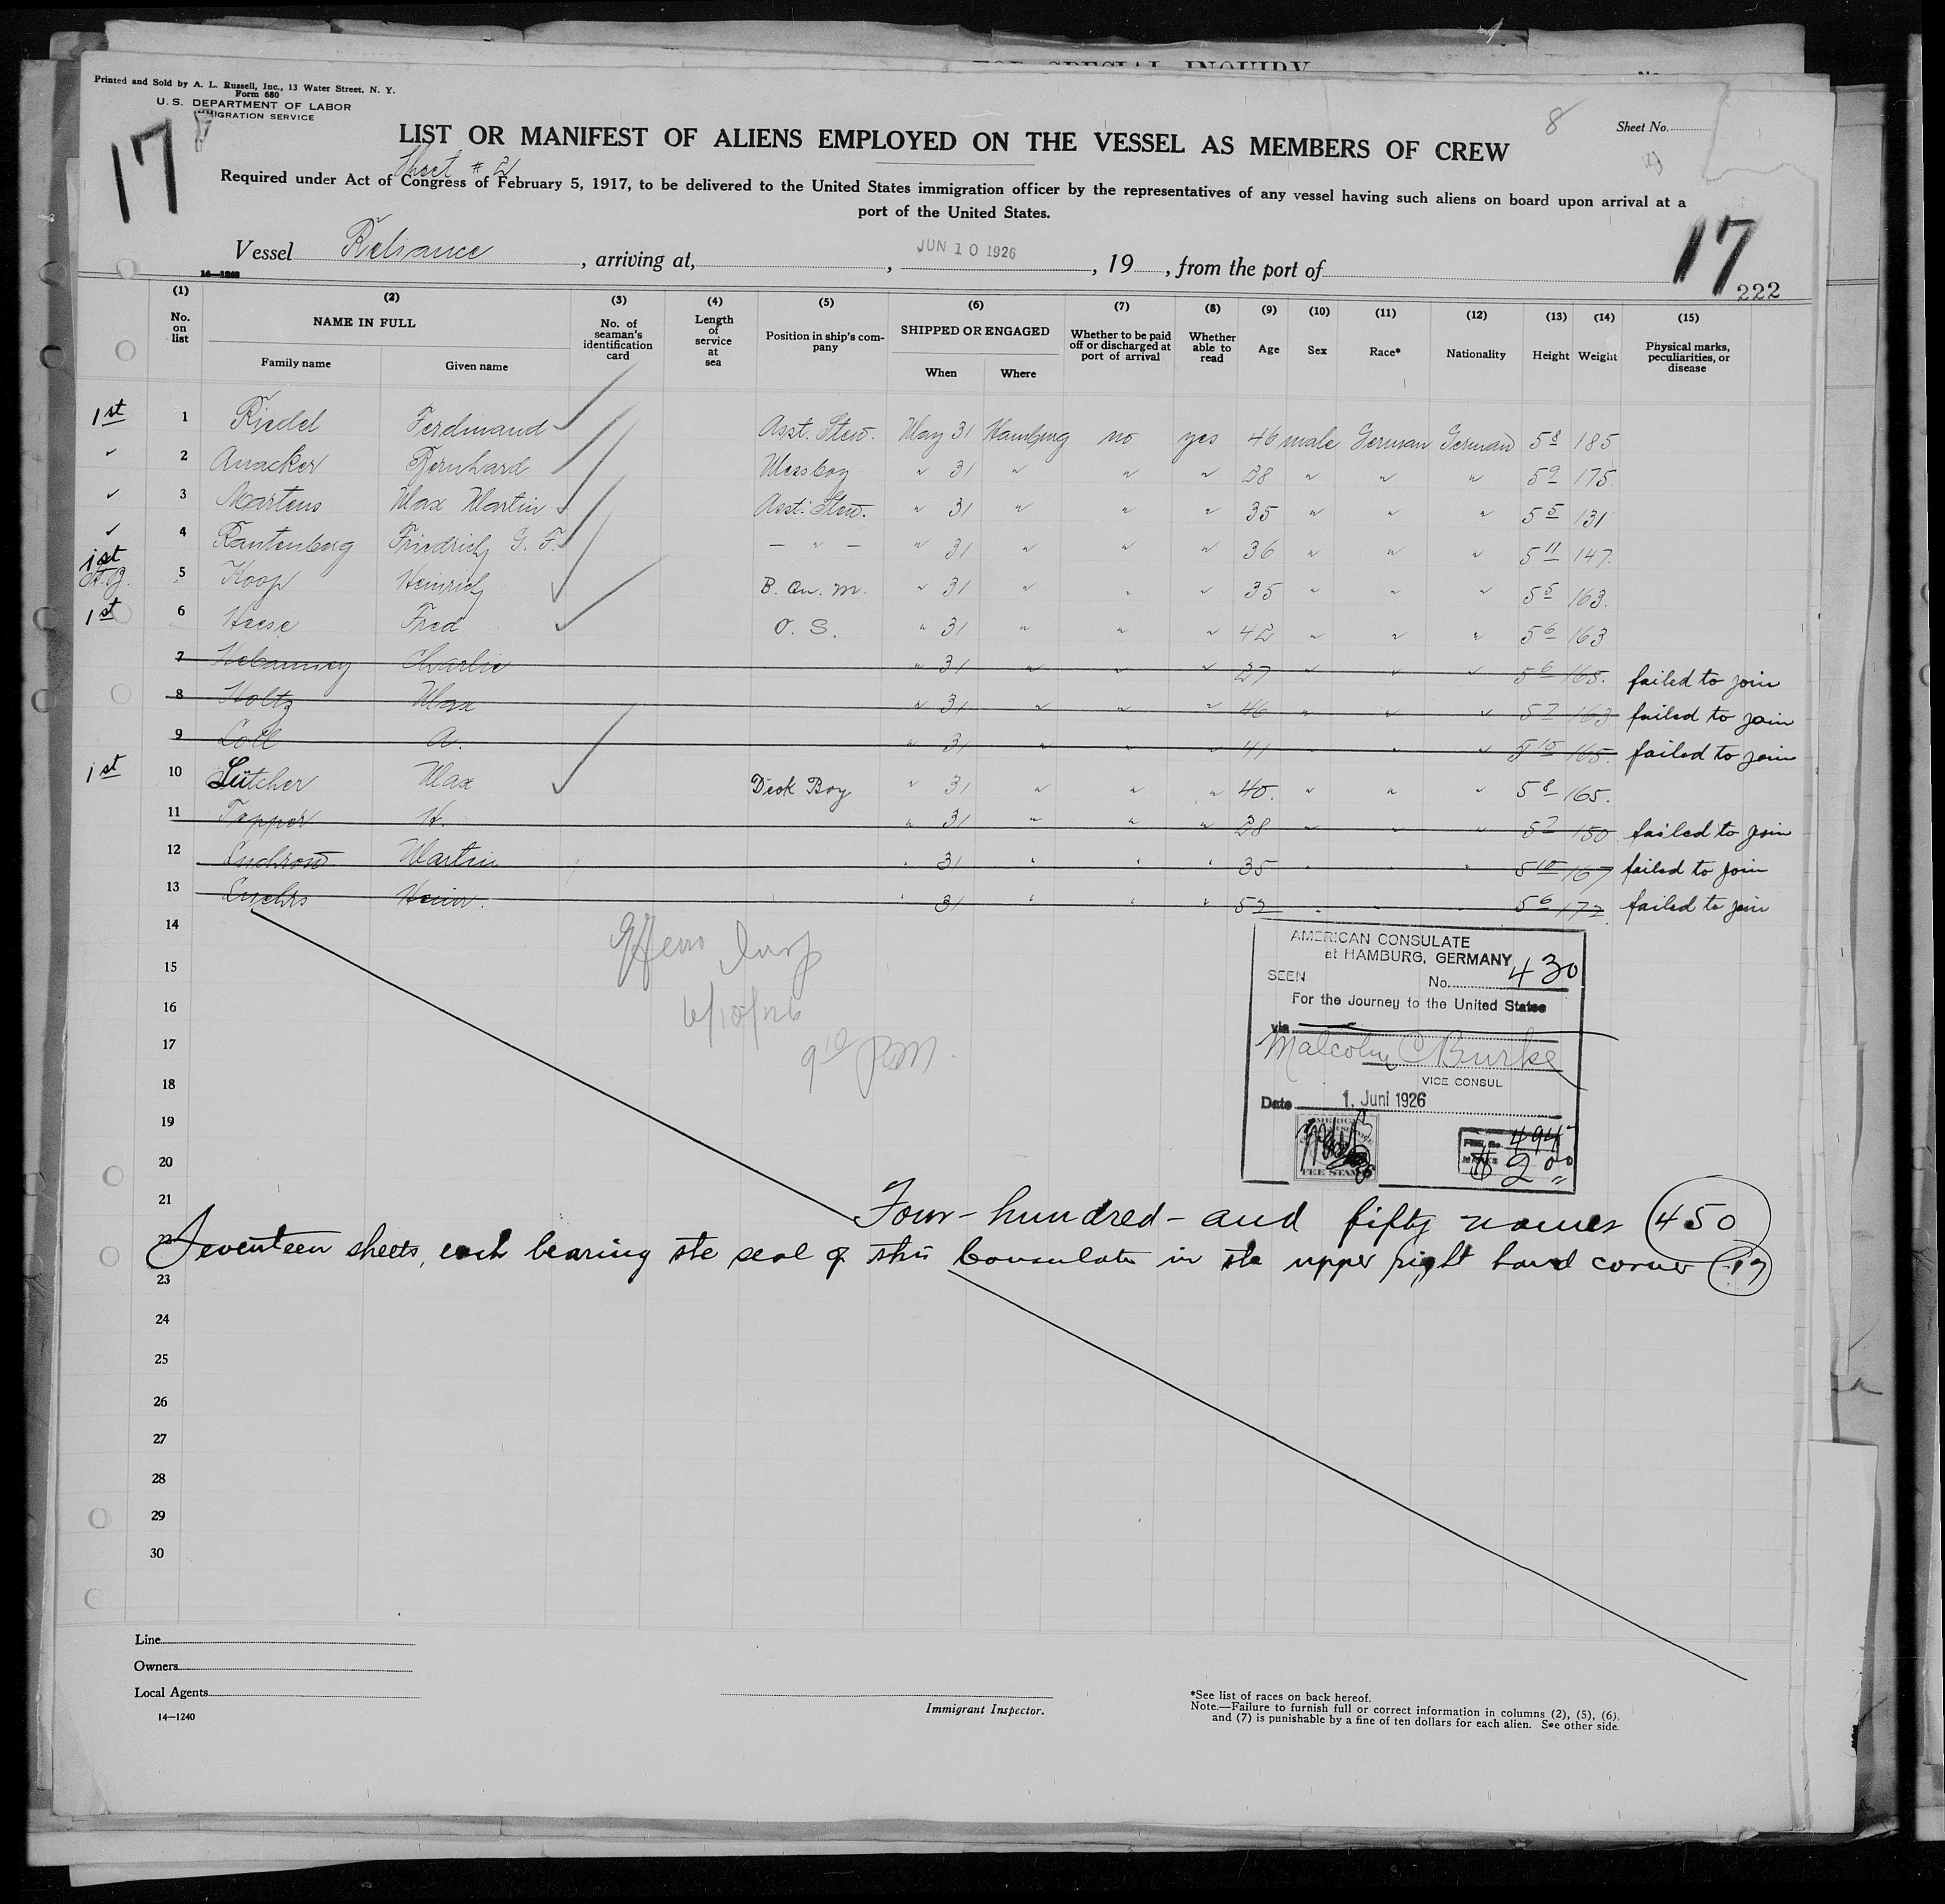 FOR SPECIAL INQUIRY
Printed and Sold by A. L. Russell, Inc., 13 Water Street, N. Y.
Form 680
U. S. DEPARTMENT OF LABOR
IMMIGRATION SERVICE
17
8
Sheet No.
LIST OR MANIFEST OF ALIENS EMPLOYED ON THE VESSEL AS MEMBERS OF CREW
Sheet #
Required under Act of Congress of February 5, 1917, to be delivered to the United States immigration officer by the representatives of any vessel having such aliens on board upon arrival at a
port of the United States.
Vessel Reliance, arriving at, , JUN 10 1926, 19 , from the port of
17
14—1240
222
(1) (2) (3) (4) (5) (6) (7) (8) (9) (10) (11) (12) (13) (14) (15)
No. on list
NAME IN FULL
Family name Given name
No. of seaman's identification card
Length of service at sea
Position in ship's company
SHIPPED OR ENGAGED
When Where
Whether to be paid off or discharged at port of arrival
Whether able to read
Age Sex Race* Nationality Height Weight
Physical marks, peculiarities, or disease
1st 1 Riedel Ferdinand Asst. Stew. May 31 Hamburg no yes 46 male German German 5 8 185
✓ 2 Anacker Bernhard Messboy " 31 " " " 28 " " " 5 9 175.
✓ 3 Martens Max Martin Asst. Stew. " 31 " " " 35 " " " 5 5 131
✓ 4 Rantenberg Friedrich G. F. — " — " 31 " " " 36 " " " 5 11 147.
1st
5 Koop Heinrich B. Au. M. " 31 " " " 35 " " " 5 5 163.
1st 6 Heese Fred O. S. " 31 " " " 42 " " " 5 6 163
7 Charlie " 31 " " " 27 " " " 5 6 165. failed to join
8 Holtz Max " 31 " " " 46 " " " 5 7 163 failed to join
9 Loll A. " 31 " " " 41 " " " 5 10 165. failed to join
1st 10 Lütcher Max Deck Boy " 31 " " " 40. " " " 5 8 165.
11 Tepper H. " 31 " " " 28 " " " 5 7 150 failed to join
12 Martin " 31 " " " 35 " " " 5 10 167 failed to join
13 Heinr. " 31 " " " 52 " " 5 6 172 failed to join
14
15
16
17
18
19
20
21
22
23
24
25
26
27
28
29
30
Insp
6/10/26
9 10 PM.
AMERICAN CONSULATE
at HAMBURG, GERMANY
SEEN No. 430
For the Journey to the United States
via
Malcolm C Burke
VICE CONSUL
Date 1. Juni 1926
AMERICAN
FEE STAMP
FEE No. 494
$ 2 00
Four-hundred-and fifty names (450)
Seventeen sheets, each bearing the seal of this Consulate in the upper right hand corner (17)
Line
Owners
Local Agents
14—1240
Immigrant Inspector.
*See list of races on back hereof.
Note.—Failure to furnish full or correct information in columns (2), (5), (6),
and (7) is punishable by a fine of ten dollars for each alien. See other side.